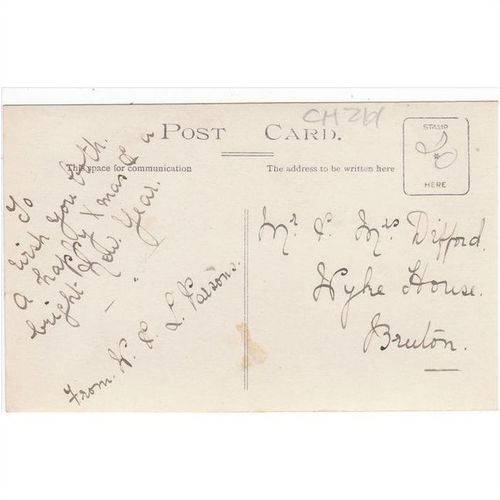 CH261
POST CARD.
This space for communication
The address to be written here
STAMP
HERE
To
wish you both
a happy Xmas & a
bright New Year.
From W. & L. Parsons.
Mr & Mrs Difford.
Wyke House.
Bruton.